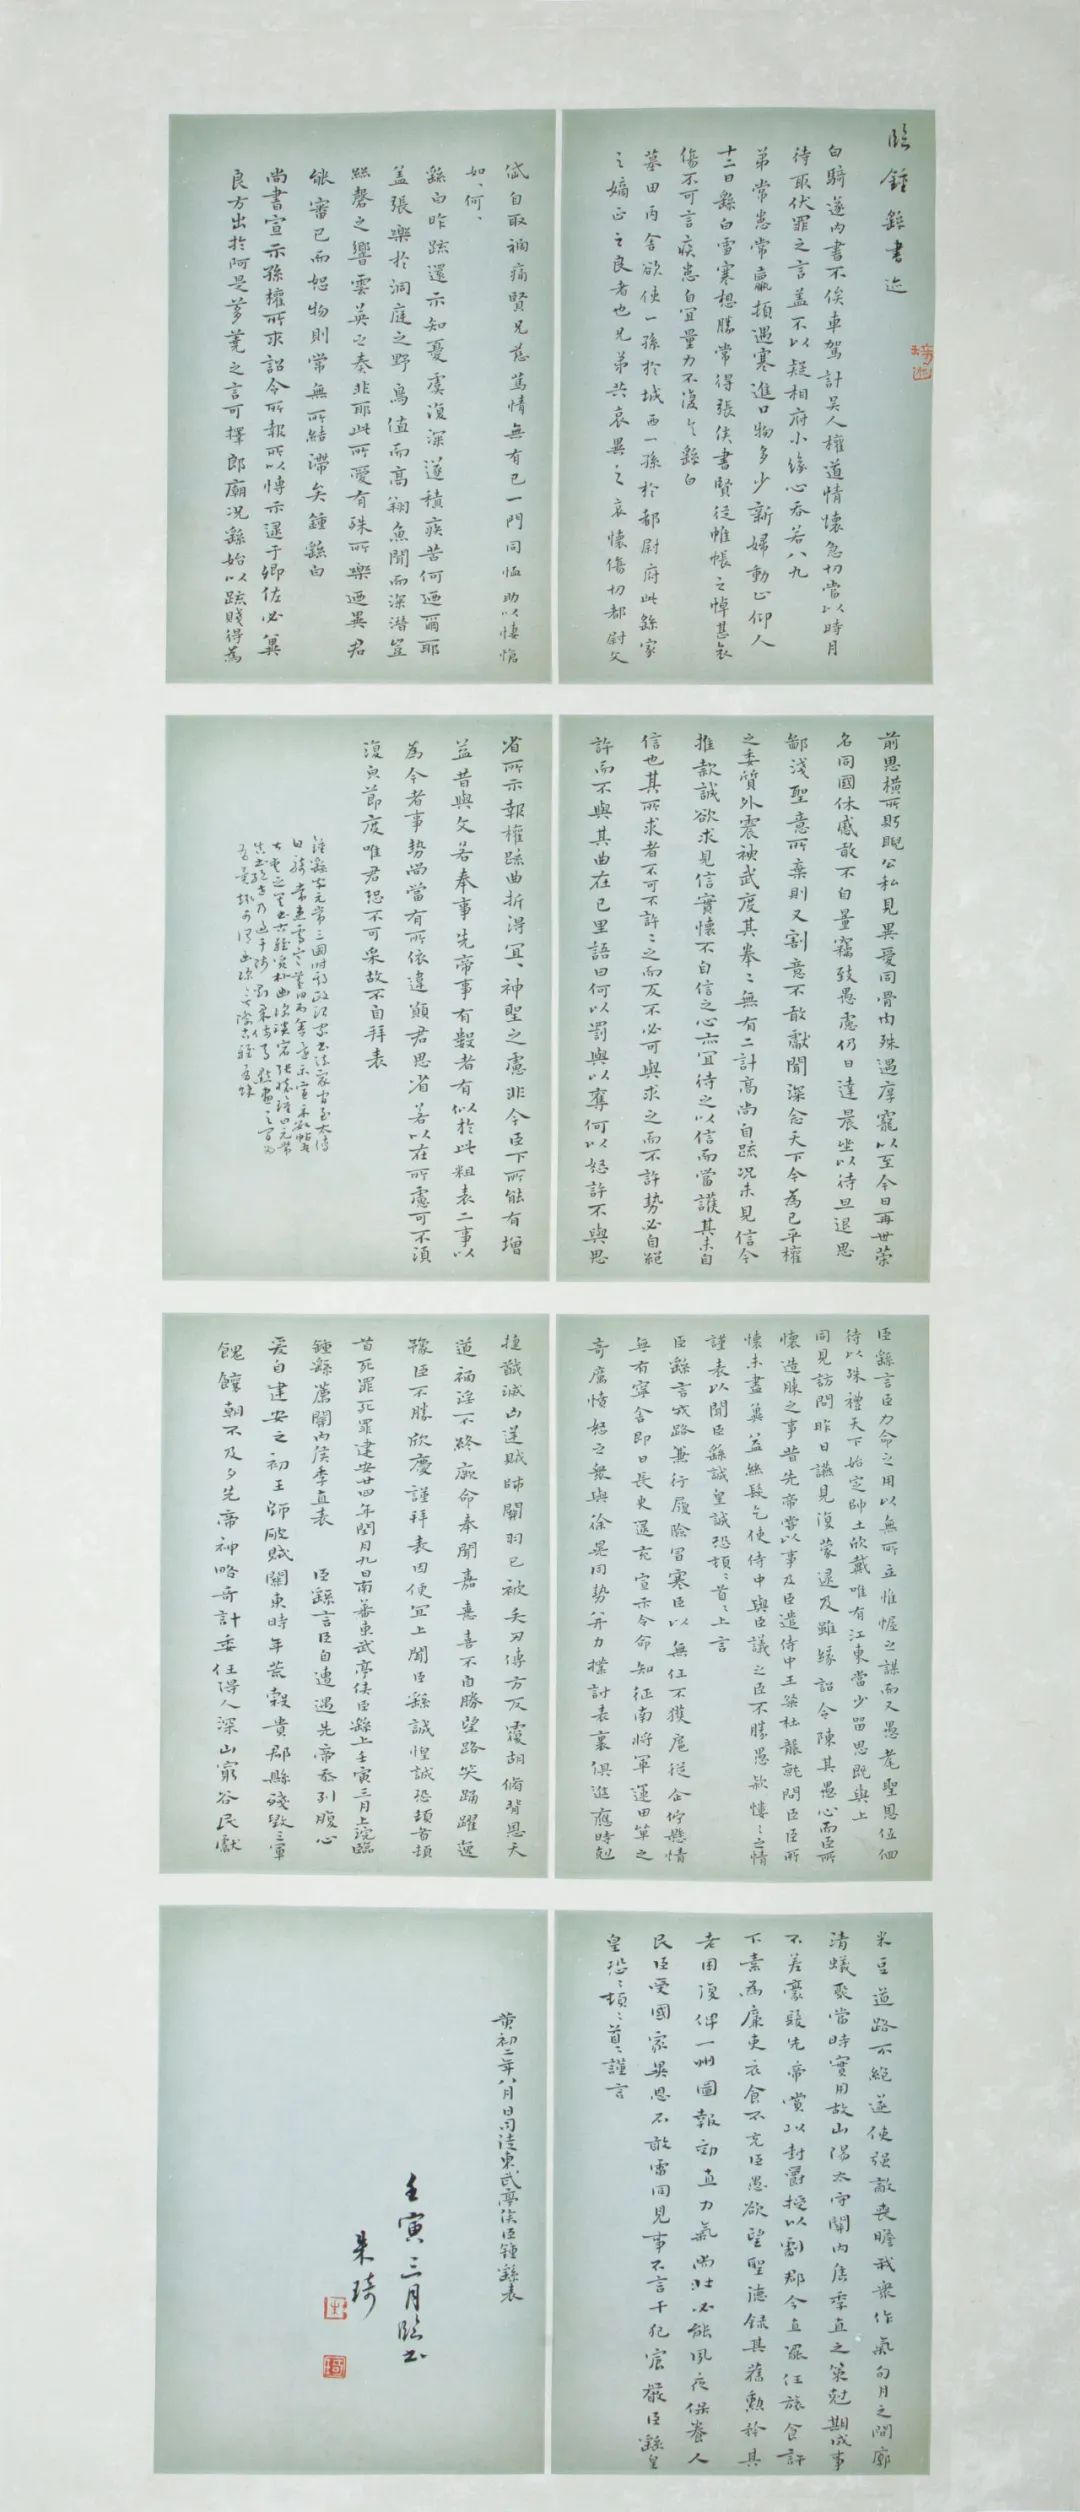 臨鍾繇書迹
白騎遂內書不俟車駕計吳人權道情懷急切當以時月
待取伏罪之言蓋不以疑相府小緣心吞若八九
弟常患常羸頓遇寒進口物多少新婦動止仰人
十二日繇白雪寒想勝常得張侯書賢從帷帳之悼甚哀
傷不可言疾患自宜量力不復具繇白
墓田丙舍欲使一孫於城西一孫於都尉府此繇家
之嫡正之良者也兄弟共哀異之哀懷傷切都尉文
岱自取禍痛賢兄慈篤情無有已一門同恤助以悽愴
如、何、
繇白昨疏還示知憂虞復深遂積疾苦何迺爾耶
蓋張樂於洞庭之野鳥值而高翔魚聞而深潛豈
絲磬之響雲英之奏非耶此所愛有殊所樂迺異君
能審己而恕物則常無所結滯矣鍾繇白
尚書宣示孫權所求詔令所報所以博示逮于卿佐必冀
良方出於阿是芻蕘之言可擇郎廟況繇始以疏賤得為
前恩橫所盱睨公私見異愛同骨肉殊遇厚寵以至今日再世榮
名同國休慼敢不自量竊致愚慮仍日達晨坐以待旦退思
鄙淺聖意所棄則又割意不敢獻聞深念天下今為已平權
之委質外震神武度其拳、無有二計高尚自疏況未見信今
推款誠欲求見信實懷不自信之心亦宜待之以信而當護其未自
信也其所求者不可不許、之而反不必可與求之而不許勢必自絕
許而不與其曲在己里語曰何以罰與以奪何以怒許不與思
省所示報權疏曲折得宜、神聖之慮非今臣下所能有增
益昔與文若奉事先帝事有數者有似於此粗表二事以
為今者事勢尚當有所依違願君思省若以在所慮可不須
復貞節度唯君恐不可采故不自拜表
臣繇言臣力命之用以無所立惟幄之謀而又愚耄聖恩低徊
待以殊禮天下始定師土欣戴唯有江東當少留思既與上
同見訪問昨日讌見復蒙逮及雖緣詔令陳其愚心而臣所
懷造膝之事昔先帝嘗以事及臣遣侍中王粲杜襲就問臣臣所
懷未盡冀益絲髮乞使侍中與臣議之臣不勝愚款慺、之情
謹表以聞臣繇誠皇誠恐頓、首、上言
臣繇言戎路兼行履險冒寒臣以無任不獲扈從企佇懸情
無有寧舍即日長史逯充宣示令命知征南將軍運田單之
奇厲憤怒之眾與徐晃同勢并力撲討表裏俱進應時剋
捷馘滅凶逆賊帥關羽已被矢刃傅方反覆胡脩背恩天
道禍淫不終厥命奉聞嘉憙喜不自勝望路笑踊躍逸
豫臣不勝欣慶謹拜表因便宜上聞臣繇誠惶誠恐頓首頓
首死罪死罪建安廿四年閏月九日南蕃東武亭侯臣繇上壬寅三月上浣臨
鍾繇薦關內侯季直表　臣繇言臣自遭遇先帝忝列腹心
爰自建安之初王師破賊關東時年荒穀貴郡縣殘毀三軍
餽饟朝不及夕先帝神略奇計委任得人深山窮谷民獻
米豆道路不絕遂使強敵喪膽我眾作氣旬月之間廓
清蟻聚當時實用故山陽太守關內侯季直之策尅期成事
不差豪髮先帝賞以封爵授以劇郡今直罷任旅食許
下素為廉吏衣食不充臣愚欲望聖德錄其舊勳矜其
老困復俾一州圖報効直力氣尚壯必能夙夜保養人
民臣受國家異恩不敢雷同見事不言干犯宸嚴臣繇皇
皇恐、頓、首、謹言
黃初二年八月日司徒東武亭侯臣鍾繇表
壬寅三月臨書
朱琦